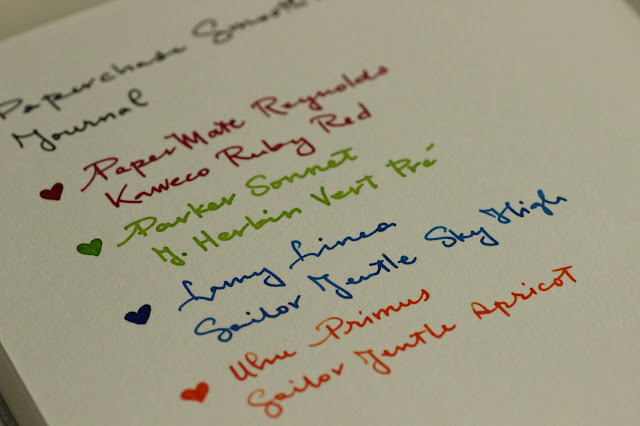 Paperchase Smooth
Journal
PaperMate Reynolds
Kaweco Ruby Red
Parker Sonnet
J. Herbin Vert Pré
Lamy Linea
Sailor Jentle Sky High
Uhu Primus
Sailor Jentle Apricot